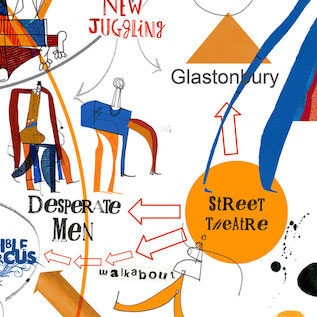 NEW
JUGGLING
Glastonbury
DESPERATE
MEN
STREET
THEATRE
walkabout